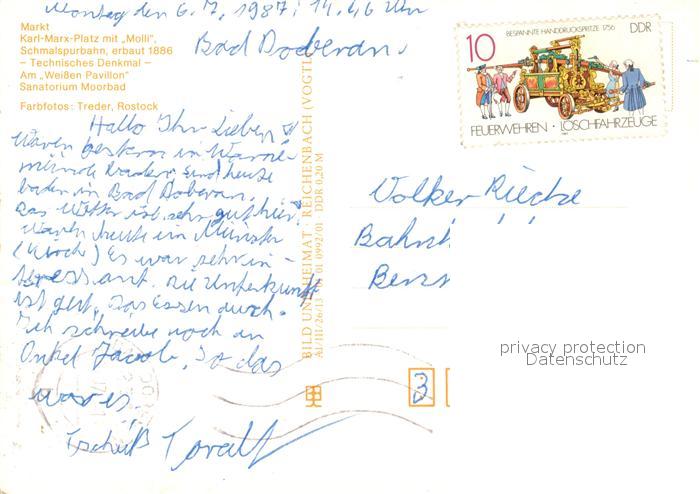 Montag den 6.7.1987, 14.46 Uhr
Bad Doberan.
Markt
Karl-Marx-Platz mit „Molli",
Schmalspurbahn, erbaut 1886
– Technisches Denkmal –
Am „Weißen Pavillon"
Sanatorium Moorbad
Farbfotos: Treder, Rostock
Hallo Ihr Lieben!
Waren gestern in Warne-
münde baden, sind heute
baden in Bad Doberan.
Das Wetter ist sehr gut hier.
Waren heute im Münster
(Kirche) Es war sehr in-
teressant. Die Unterkunft
ist gut, das Essen auch.
Ich schreibe noch an
Onkel Jacob, So das
war es.
Tschüß Toralf
BILD UND HEIMAT · REICHENBACH (VOGTL
A1/III/26/13 01 01 0992/01 DDR 0,20 M
10
BESPANNTE HANDDRUCKSPRITZE 1756
DDR
FEUERWEHREN · LÖSCHFAHRZEUGE
Volker
Bahnh
privacy protection
Datenschutz
3